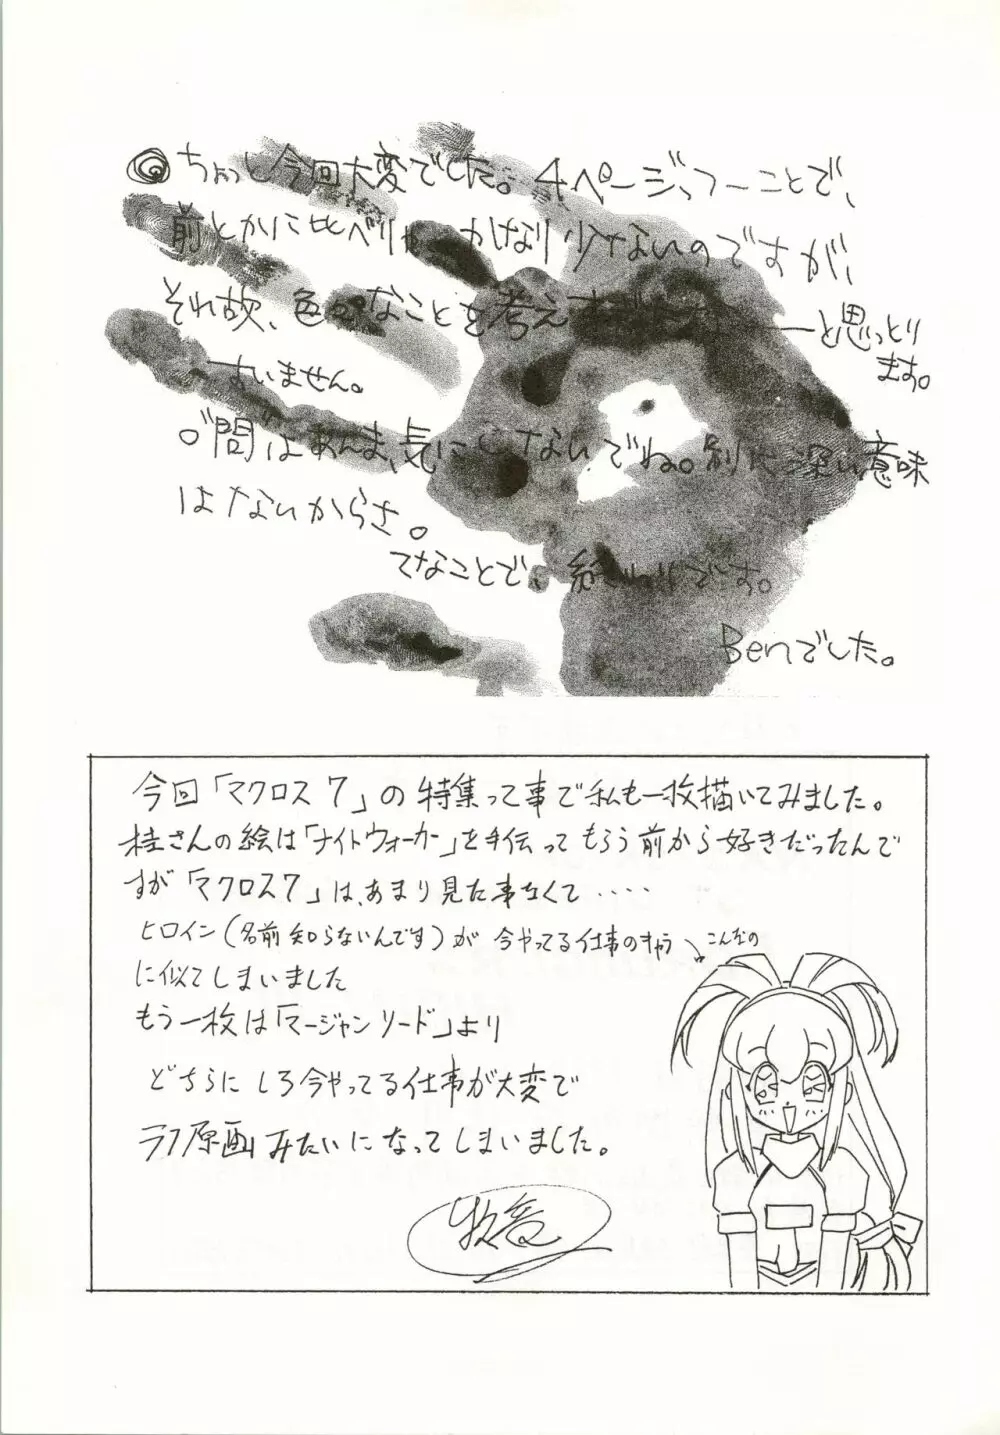 ちょっし今回大変でした。4ページっつーことで、
前とかに比べりゃ かなり少ないのですが、
それ故、色々なことを考え ーーと思っとり
ます。
すいません。
。"間"はあんま、気にしないでね。別に深い意味
はないからさ。
てなことで、終わりです。
Benでした。
今回「マクロス7」の特集って事で私も一枚描いてみました。
桂さんの絵は「ナイトウォーカー」を手伝ってもらう前から好きだったんで
すが「マクロス7」は、あまり見た事なくて‥‥
ヒロイン(名前知らないんです)が 今やってる仕事のキャラ
こんなの
に似てしまいました
もう一枚は「マージャンリード」より
どちらにしろ今やってる仕事が大変で
ラフ原画みたいになってしまいました。